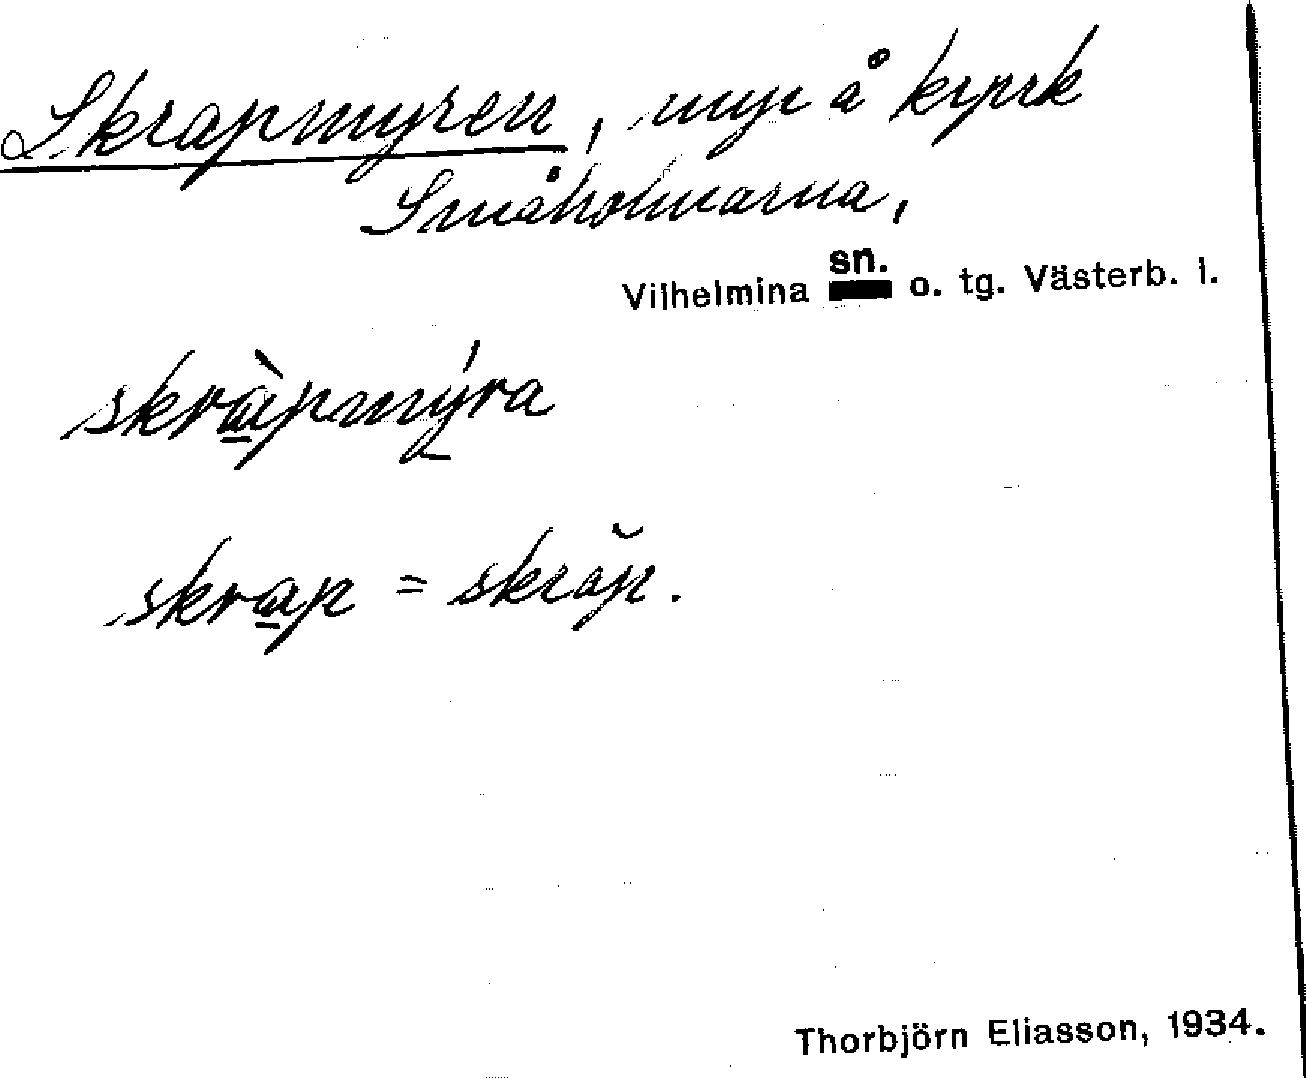 Skrapmyren, myr å kyrk
Småholmarna,
Vilhelmina sn. o. tg. Västerb. l.
skrà̱pmý̱ra
skra̱p = skrăp.
Thorbjörn Eliasson, 1934.